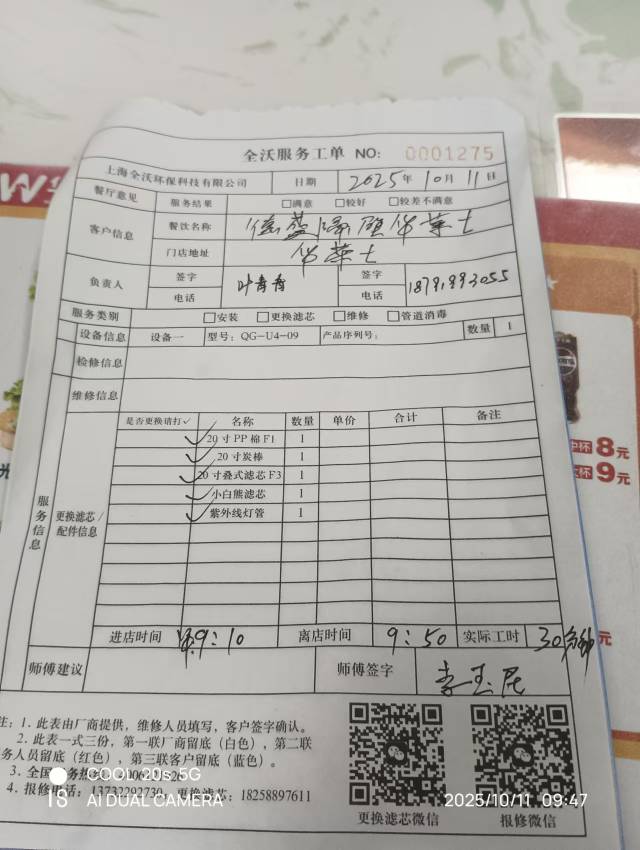 全沃服务工单 NO: 0001275
上海全沃环保科技有限公司 日期 2025年10月11日
餐厅意见 服务结果 □满意 □较好 □较差不满意
客户信息 餐饮名称 华莱士
门店地址 华莱士
负责人 签字 叶青青 签字
电话 电话 18791993055
服务类别 □安装 □更换滤芯 □维修 □管道消毒
设备信息 设备一 型号: QG-U4-09 产品序列号: 数量 1
检修信息
维修信息
服务信息
更换滤芯/配件信息
是否更换请打✓ 名称 数量 单价 合计 备注
✓ 20寸PP棉F1 1
✓ 20寸炭棒 1
✓ 20寸叠式滤芯F3 1
✓ 小白熊滤芯 1
✓ 紫外线灯管 1
进店时间 9:10 离店时间 9:50 实际工时 30分钟
师傅建议 师傅签字
注: 1. 此表由厂商提供，维修人员填写，客户签字确认。
2. 此表一式三份，第一联厂商留底（白色），第二联
务人员留底（红色），第三联客户留底（蓝色）。
3. 全国
4. 报修电话: 13732292730 更换滤芯: 18258897611
更换滤芯微信 报修微信
COOL 20s 5G
AI DUAL CAMERA
2025/10/11 09:47
W
中杯 8元
9元
元